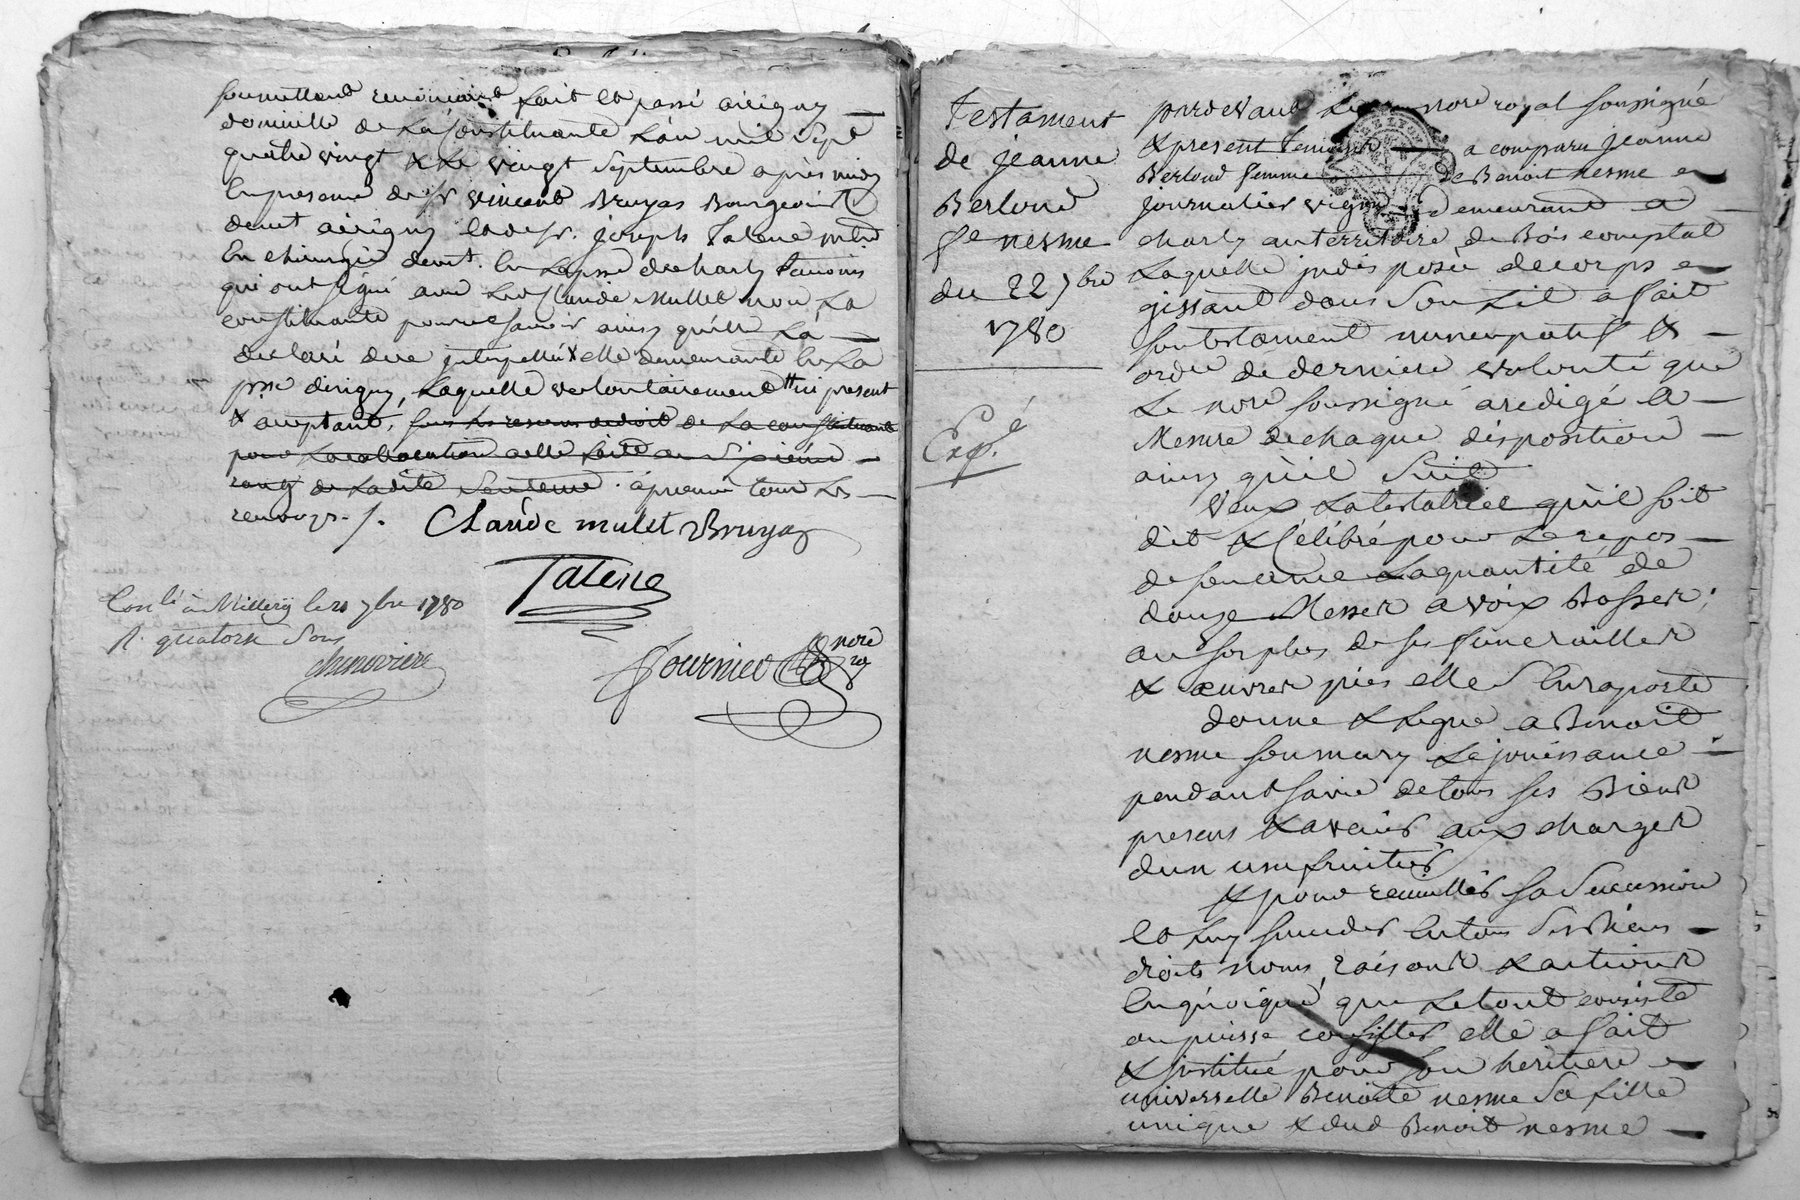 soumettant renonciant fait et passé a irigny
domicille de la constituante l'an mil sept
quatre vingt & le vingt septembre après midy
en presence de sr vincent Bruyas Bourgeois
demt a irigny et de sr. joseph Talene
en chirurgie demt. en la psse de charly temoins
qui ont signé avec led Claude Mullet non la
constituante pour ne savoir ainsy qu'elle la
declaré de ce interpellée & elle demeurante en la
psse dirigny, laquelle volontairement ici present
& acceptant, sous les reserves de droit de la constituante
pour la collocation a elle faite au sixième
rang de la dite sentence. approuvé tous les
renvoys ./.
Claude mulet Bruyas
Talene
Conlé à Millery le 21 7bre 1780
R. quatorze sous
chenoviere
fournier
nore
ry
Testament
de jeanne
Berloud
fe nesme
du 22 7bre
1780
Expé
pardevant le nore royal soussigné
& present temoins a comparu jeanne
Berloud femme de Benoit nesme
journalier vigneron demeurant a
charly au territoire de Bois comptal
laquelle indisposée de corps
gissant dans son lit a fait
son testament nuncupatif &
ordre de derniere volonté que
le nore soussigné a redigé a
Mesure de chaque disposition
ainsy qu'il suit
Veux la testatrice qu'il soit
dit & célébré pour le repos
de son ame la quantité de
douze Messes a voix Basses;
au surplus de ses funerailles
& œuvres pies elle s'en raporte
donne & legue a Benoit
nesme son mary la jouissance
pendant sa vie de tous ses Biens
presens & avenir aux charges
d'un usufruitier
& pour recueillir sa succession
et luy succeder en tous ses Biens
droits noms, raisons & actions
en quoique que le tout consiste
ou puisse consister elle a fait
& institué pour son heritiere
universelle Benoite nesme sa fille
unique & dud Benoit nesme